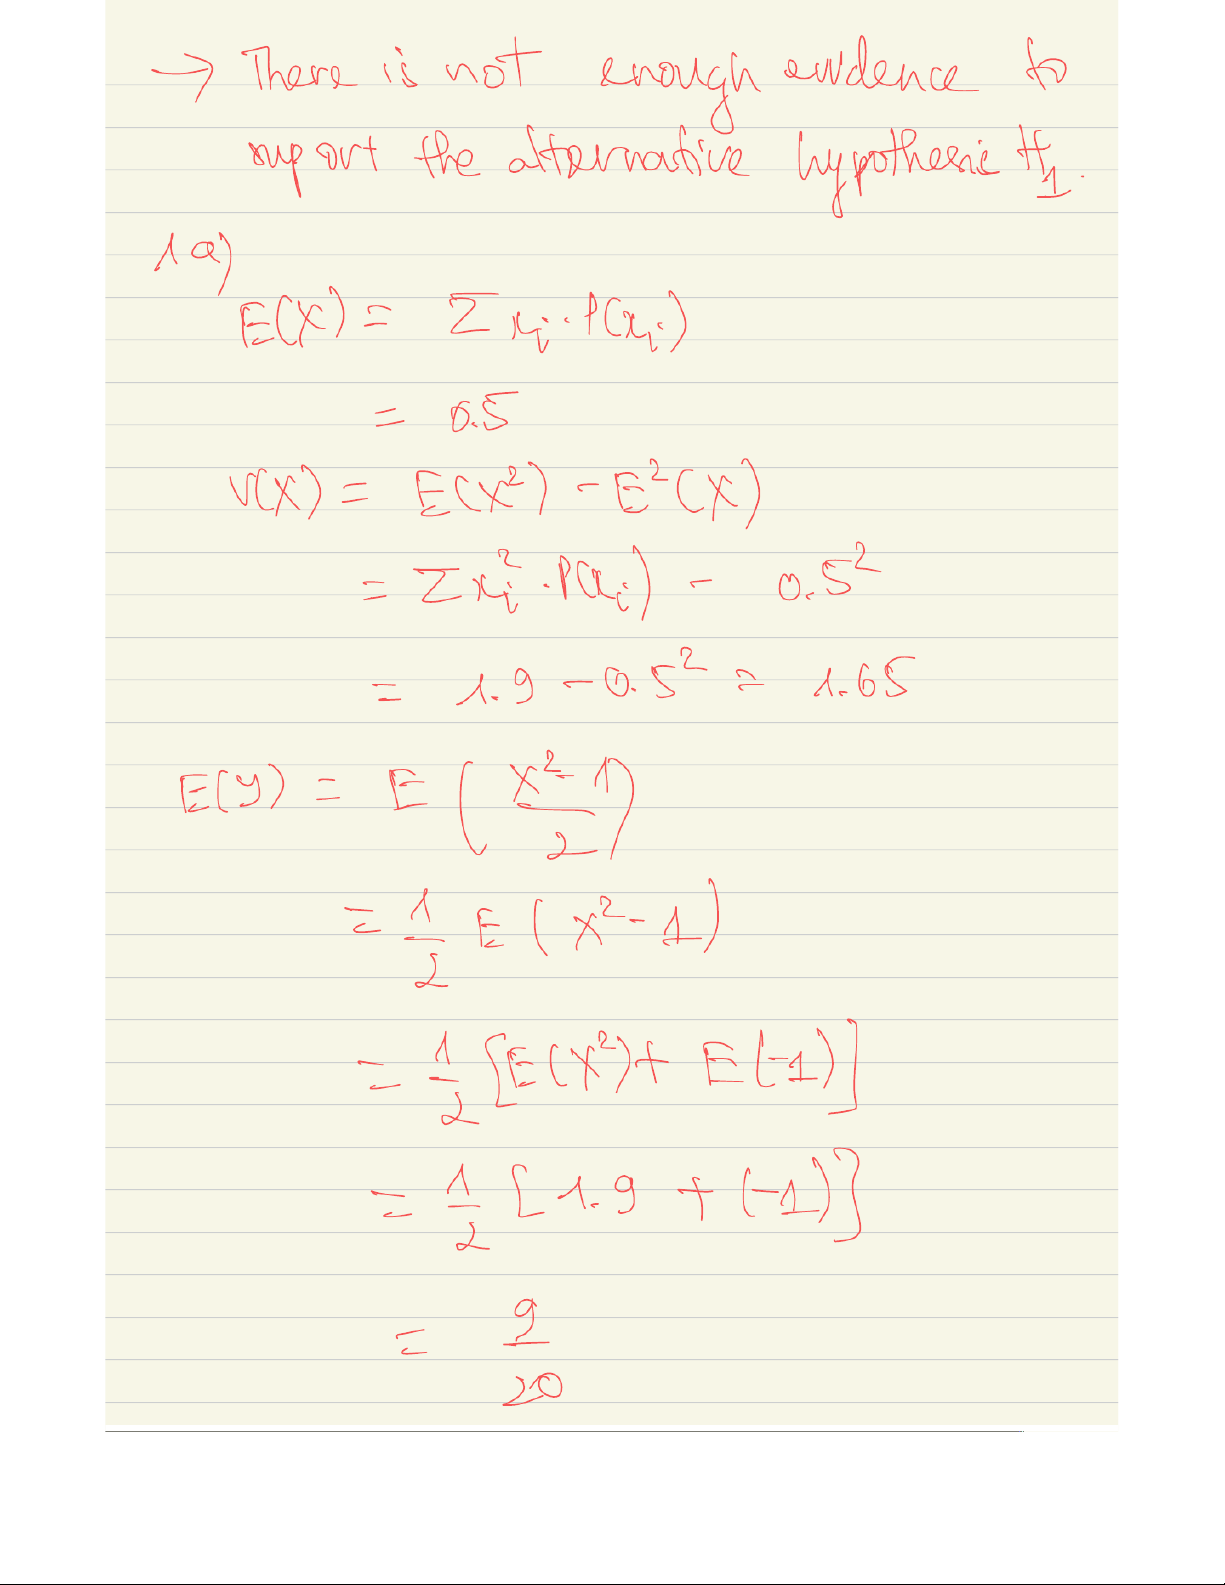 → There is not enough evidence to
suport the alternative hypothesis H₁.
1a)
E(X) = Σ xᵢ·P(xᵢ)
= 0.5
V(X) = E(X²) - E²(X)
= Σ xᵢ²·P(xᵢ) - 0.5²
= 1.9 - 0.5² = 1.65
E(y) = E ( (X² - 1) / 2 )
= 1/2 E ( X² - 1 )
= 1/2 [E(X²) + E(-1)]
= 1/2 [1.9 + (-1)]
= 9/20